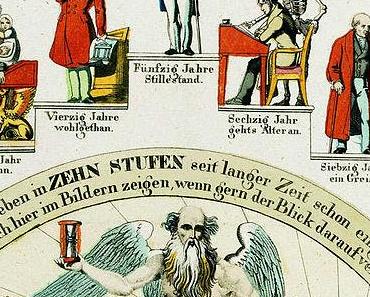 Fünfzig Jahre
Stillestand.
Vierzig Jahre
wohlgethan.
Sechzig Jahr
gehts Alter an.
Jahr
nn.
Siebzig Jah
ein Grei
eben in ZEHN STUFEN seit langer Zeit schon ein
h hier im Bildern zeigen, wenn gern der Blick darauf ve